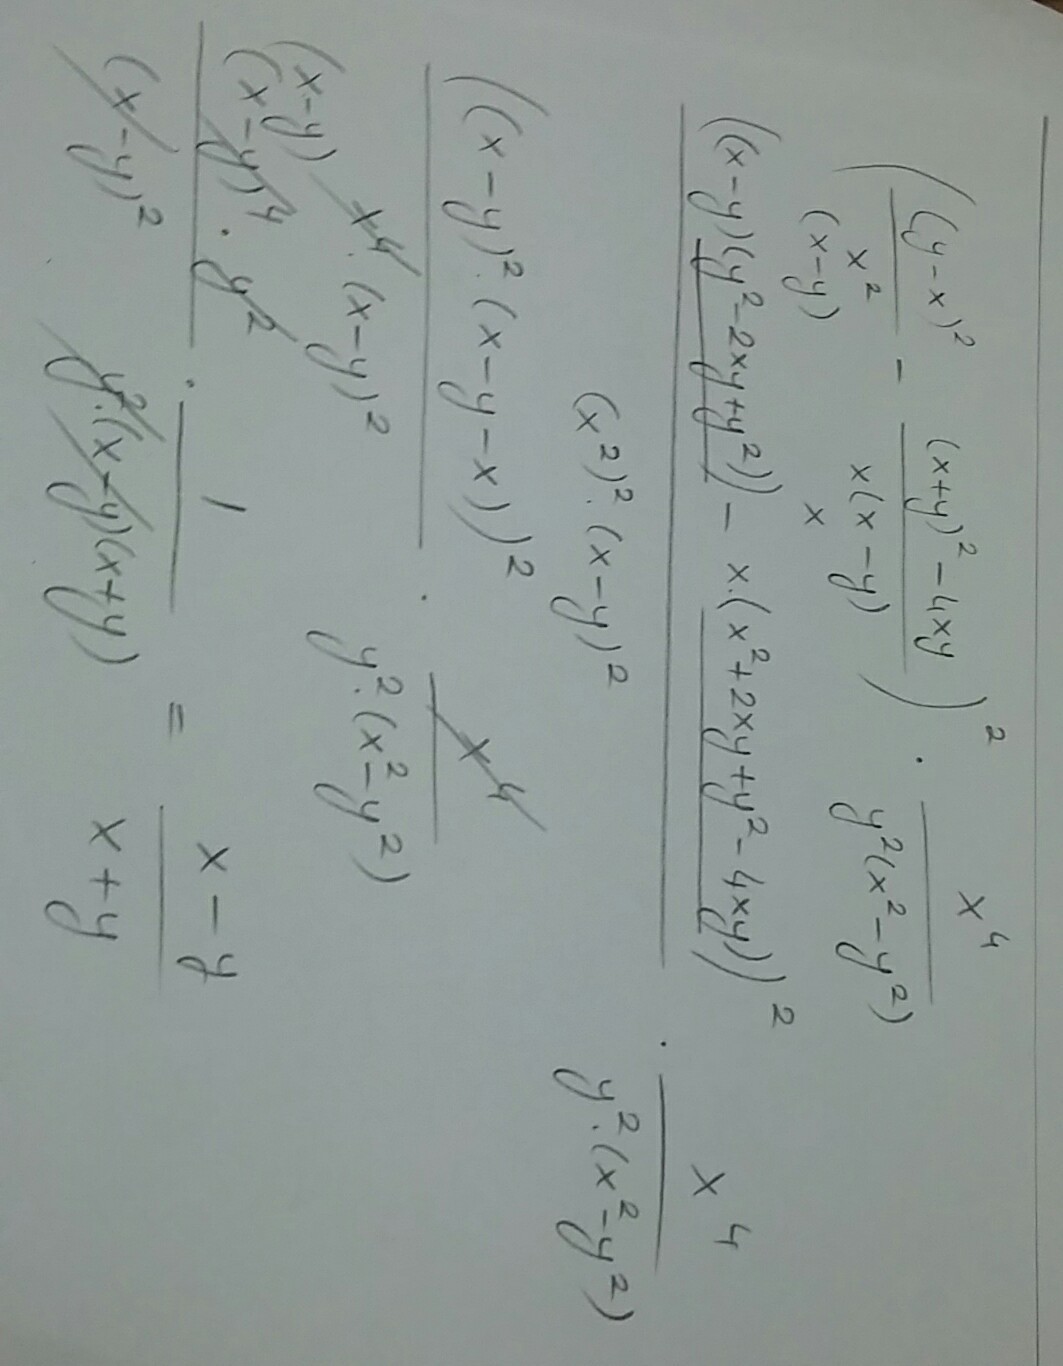 ((y-x)²/x² - ((x+y)²-4xy)/(x(x-y)))² · x⁴/(y²(x²-y²))
(x-y) x
((x-y)(y²-2xy+y²)) - x·(x²+2xy+y²-4xy))² / (x²)²·(x-y)² · x⁴/(y²·(x²-y²))
((x-y)²·(x-y-x))² / x⁴·(x-y)² · x⁴/(y²·(x²-y²))
(x-y)
(x-y)⁴·y²/(x-y)² · 1/(y²·(x-y)(x+y)) = (x-y)/(x+y)